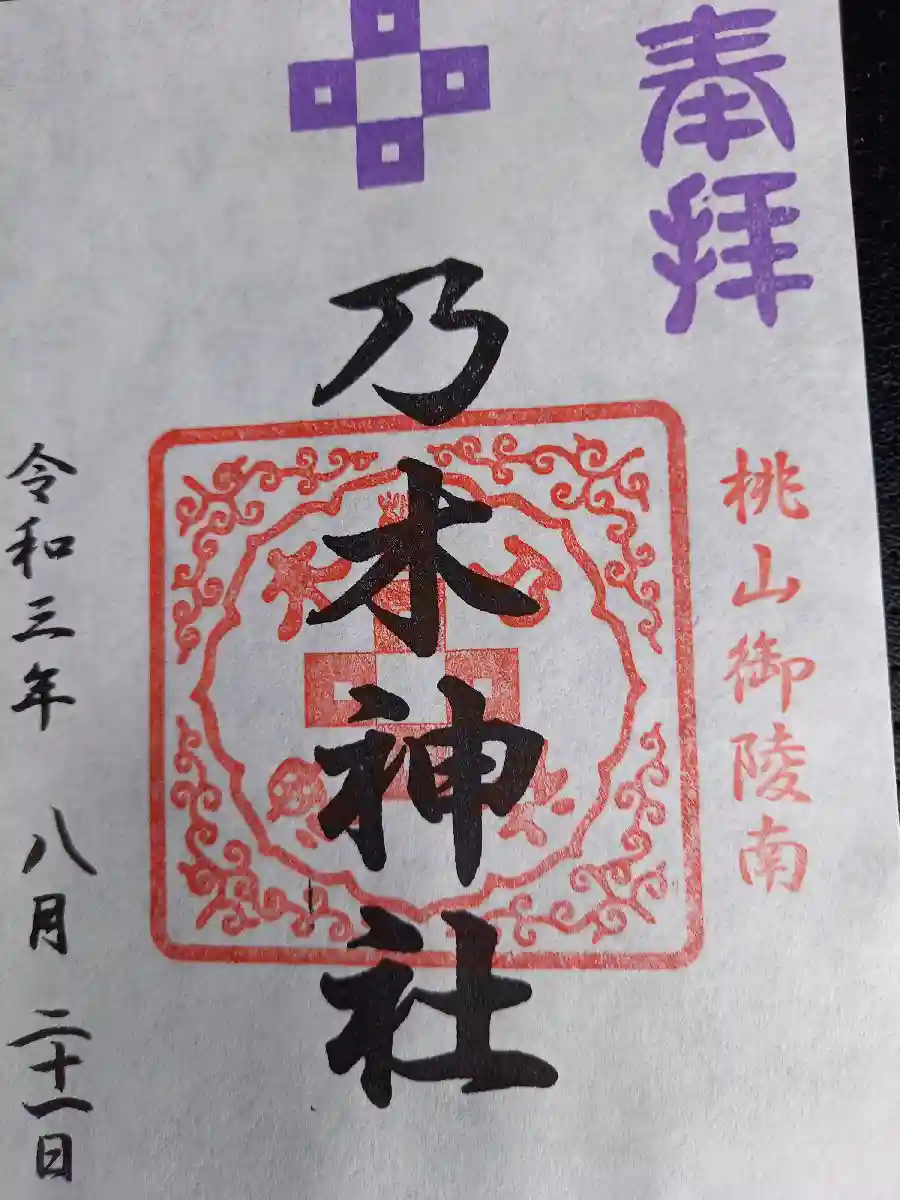 奉拝
桃山御陵南
乃木神社
令和三年 八月 二十一日